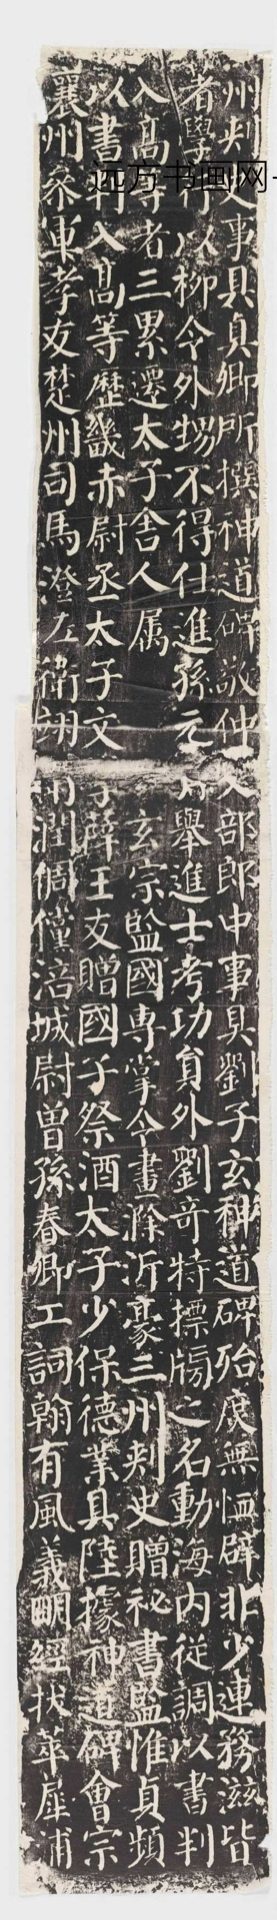 远方书画网-
州刺史事具真卿所撰神道碑敬仲吏部郎中事具劉子玄神道碑殆庶無恤辟非少連務滋皆
著學行以柳令外甥不得仕進孫元孫舉進士考功員外劉奇特摽牓之名動海内從調以書判
入高等者三累遷太子舍人属玄宗監國專掌令畫滁沂豪三州刺史贈祕書監惟貞頻
以書判入高等歷畿赤尉丞太子文學薛王友贈國子祭酒太子少保德業具陸據神道碑會宗
襄州參軍孝友楚州司馬澄左衛翊衛潤倜儻涪城尉曾孫春卿工詞翰有風義明經拔萃犀浦